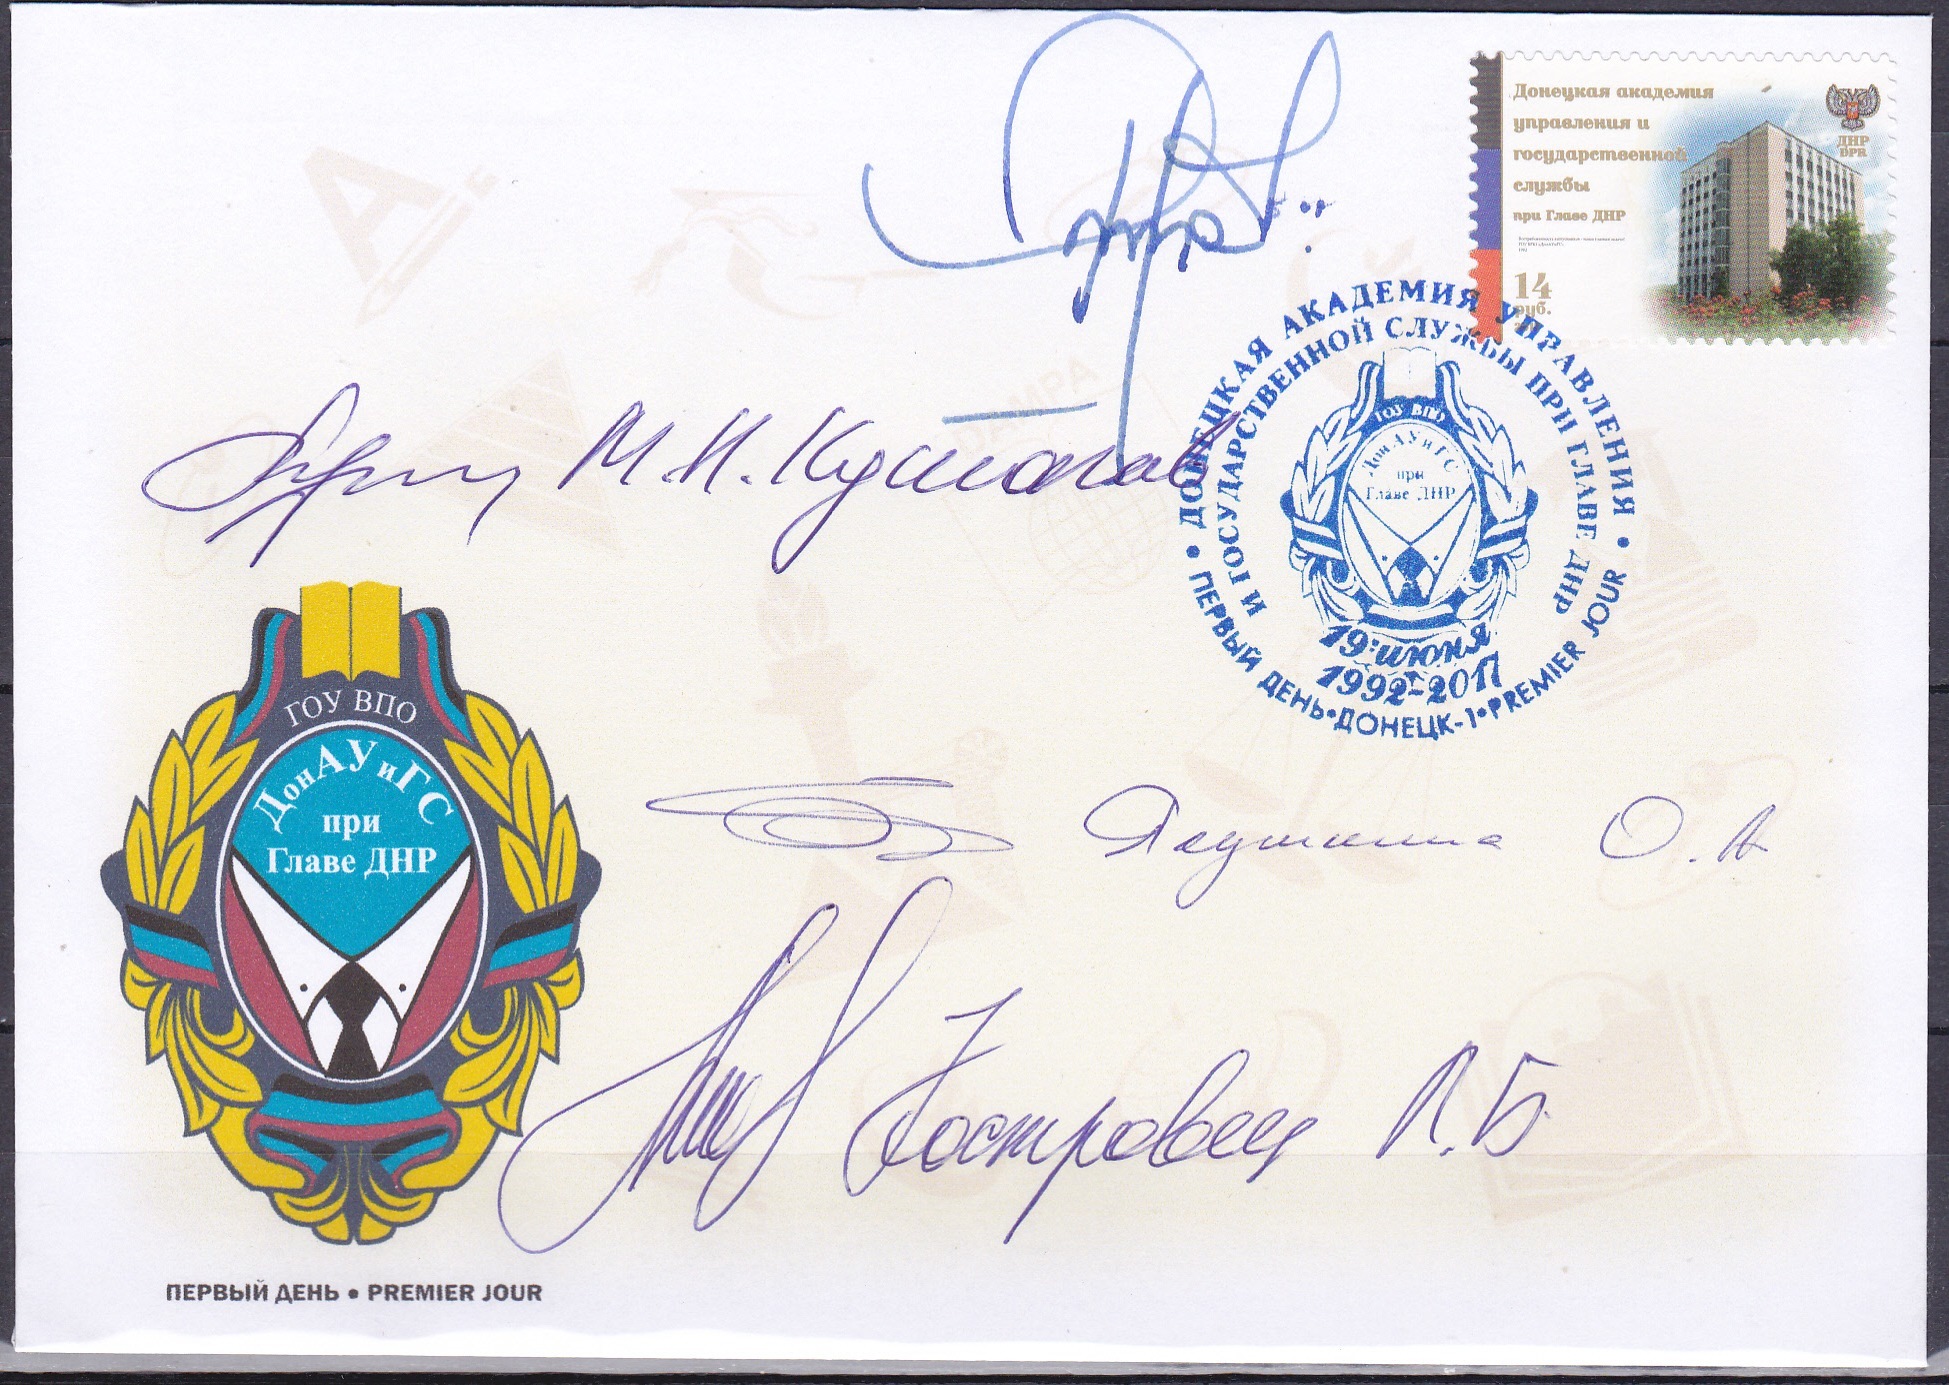 Донецкая академия
управления и
государственной
службы
при Главе ДНР
14
руб.
ДНР
DPR
ДОНЕЦКАЯ АКАДЕМИЯ УПРАВЛЕНИЯ
И ГОСУДАРСТВЕННОЙ СЛУЖБЫ ПРИ ГЛАВЕ ДНР
ГОУ ВПО
ДонАУиГС
при
Главе ДНР
19 июня
1992-2017
• ПЕРВЫЙ ДЕНЬ • ДОНЕЦК-1 • PREMIER JOUR •
М.Н.
ГОУ ВПО
ДонАУиГС
при
Главе ДНР
О.А
Костровец Л.Б.
ПЕРВЫЙ ДЕНЬ • PREMIER JOUR